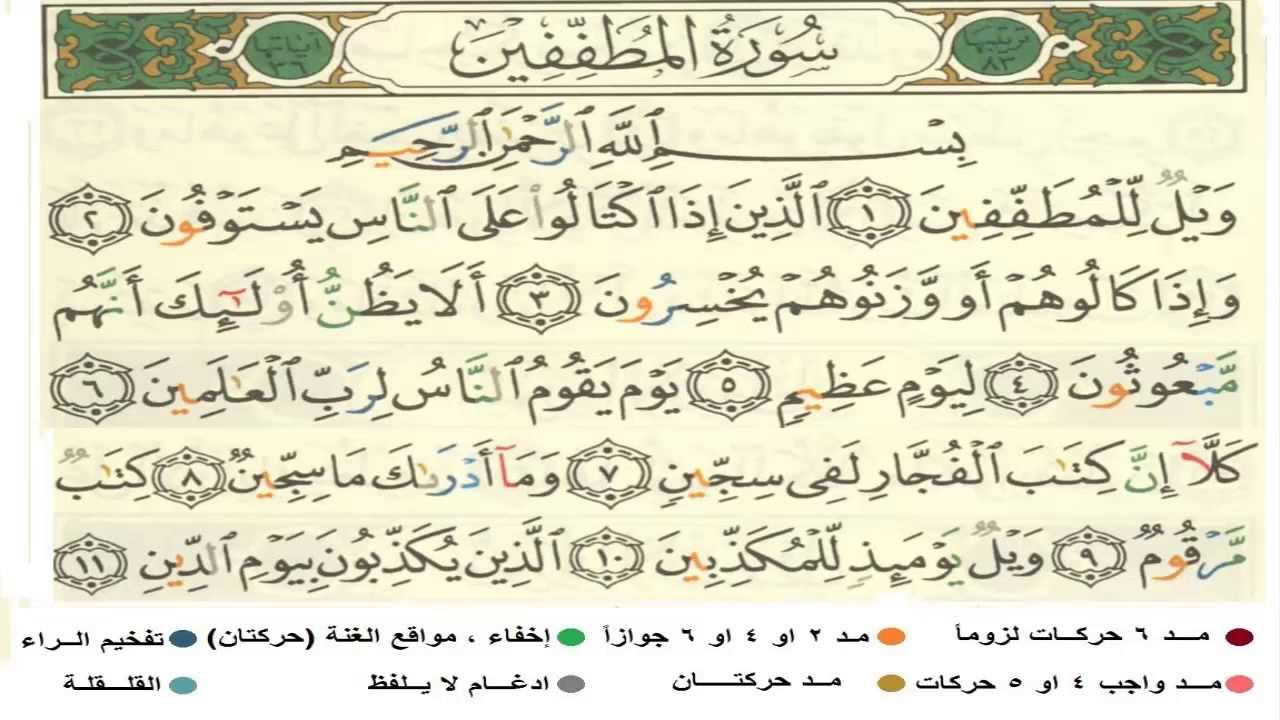 ترتيبها ٨٣ سُورَةُ المُطَفِّفِين آياتها ٣٦
بِسْمِ ٱللَّهِ ٱلرَّحْمَٰنِ ٱلرَّحِيمِ
وَيْلٌ لِّلْمُطَفِّفِينَ ١ ٱلَّذِينَ إِذَا ٱكْتَالُوا۟ عَلَى ٱلنَّاسِ يَسْتَوْفُونَ ٢
وَإِذَا كَالُوهُمْ أَو وَّزَنُوهُمْ يُخْسِرُونَ ٣ أَلَا يَظُنُّ أُو۟لَٰٓئِكَ أَنَّهُم
مَّبْعُوثُونَ ٤ لِيَوْمٍ عَظِيمٍ ٥ يَوْمَ يَقُومُ ٱلنَّاسُ لِرَبِّ ٱلْعَٰلَمِينَ ٦
كَلَّآ إِنَّ كِتَٰبَ ٱلْفُجَّارِ لَفِى سِجِّينٍ ٧ وَمَآ أَدْرَىٰكَ مَا سِجِّينٌ ٨ كِتَٰبٌ
مَّرْقُومٌ ٩ وَيْلٌ يَوْمَئِذٍ لِّلْمُكَذِّبِينَ ١٠ ٱلَّذِينَ يُكَذِّبُونَ بِيَوْمِ ٱلدِّينِ ١١
مـد ٦ حركـات لزوماً مـد ٢ او ٤ او ٦ جوازاً إخفاء ، مواقع الغنة (حركتان) تفخيم الـراء
مـد واجب ٤ او ٥ حركات مـد حركتـان ادغـام لا يـلفظ القلـقلة